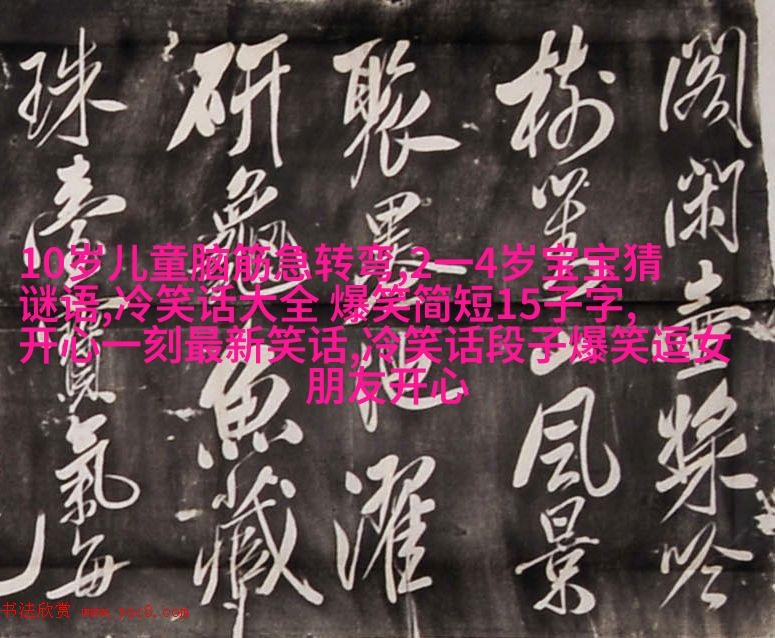 阁闲壶吟
树风景
聚墨池濯
研鱼藏
珠宝氣每
10岁儿童脑筋急转弯,2一4岁宝宝猜
谜语,冷笑话大全 爆笑简短15子字,
开心一刻最新笑话,冷笑话段子爆笑逗女
朋友开心
书法欣赏 www.yac8.com